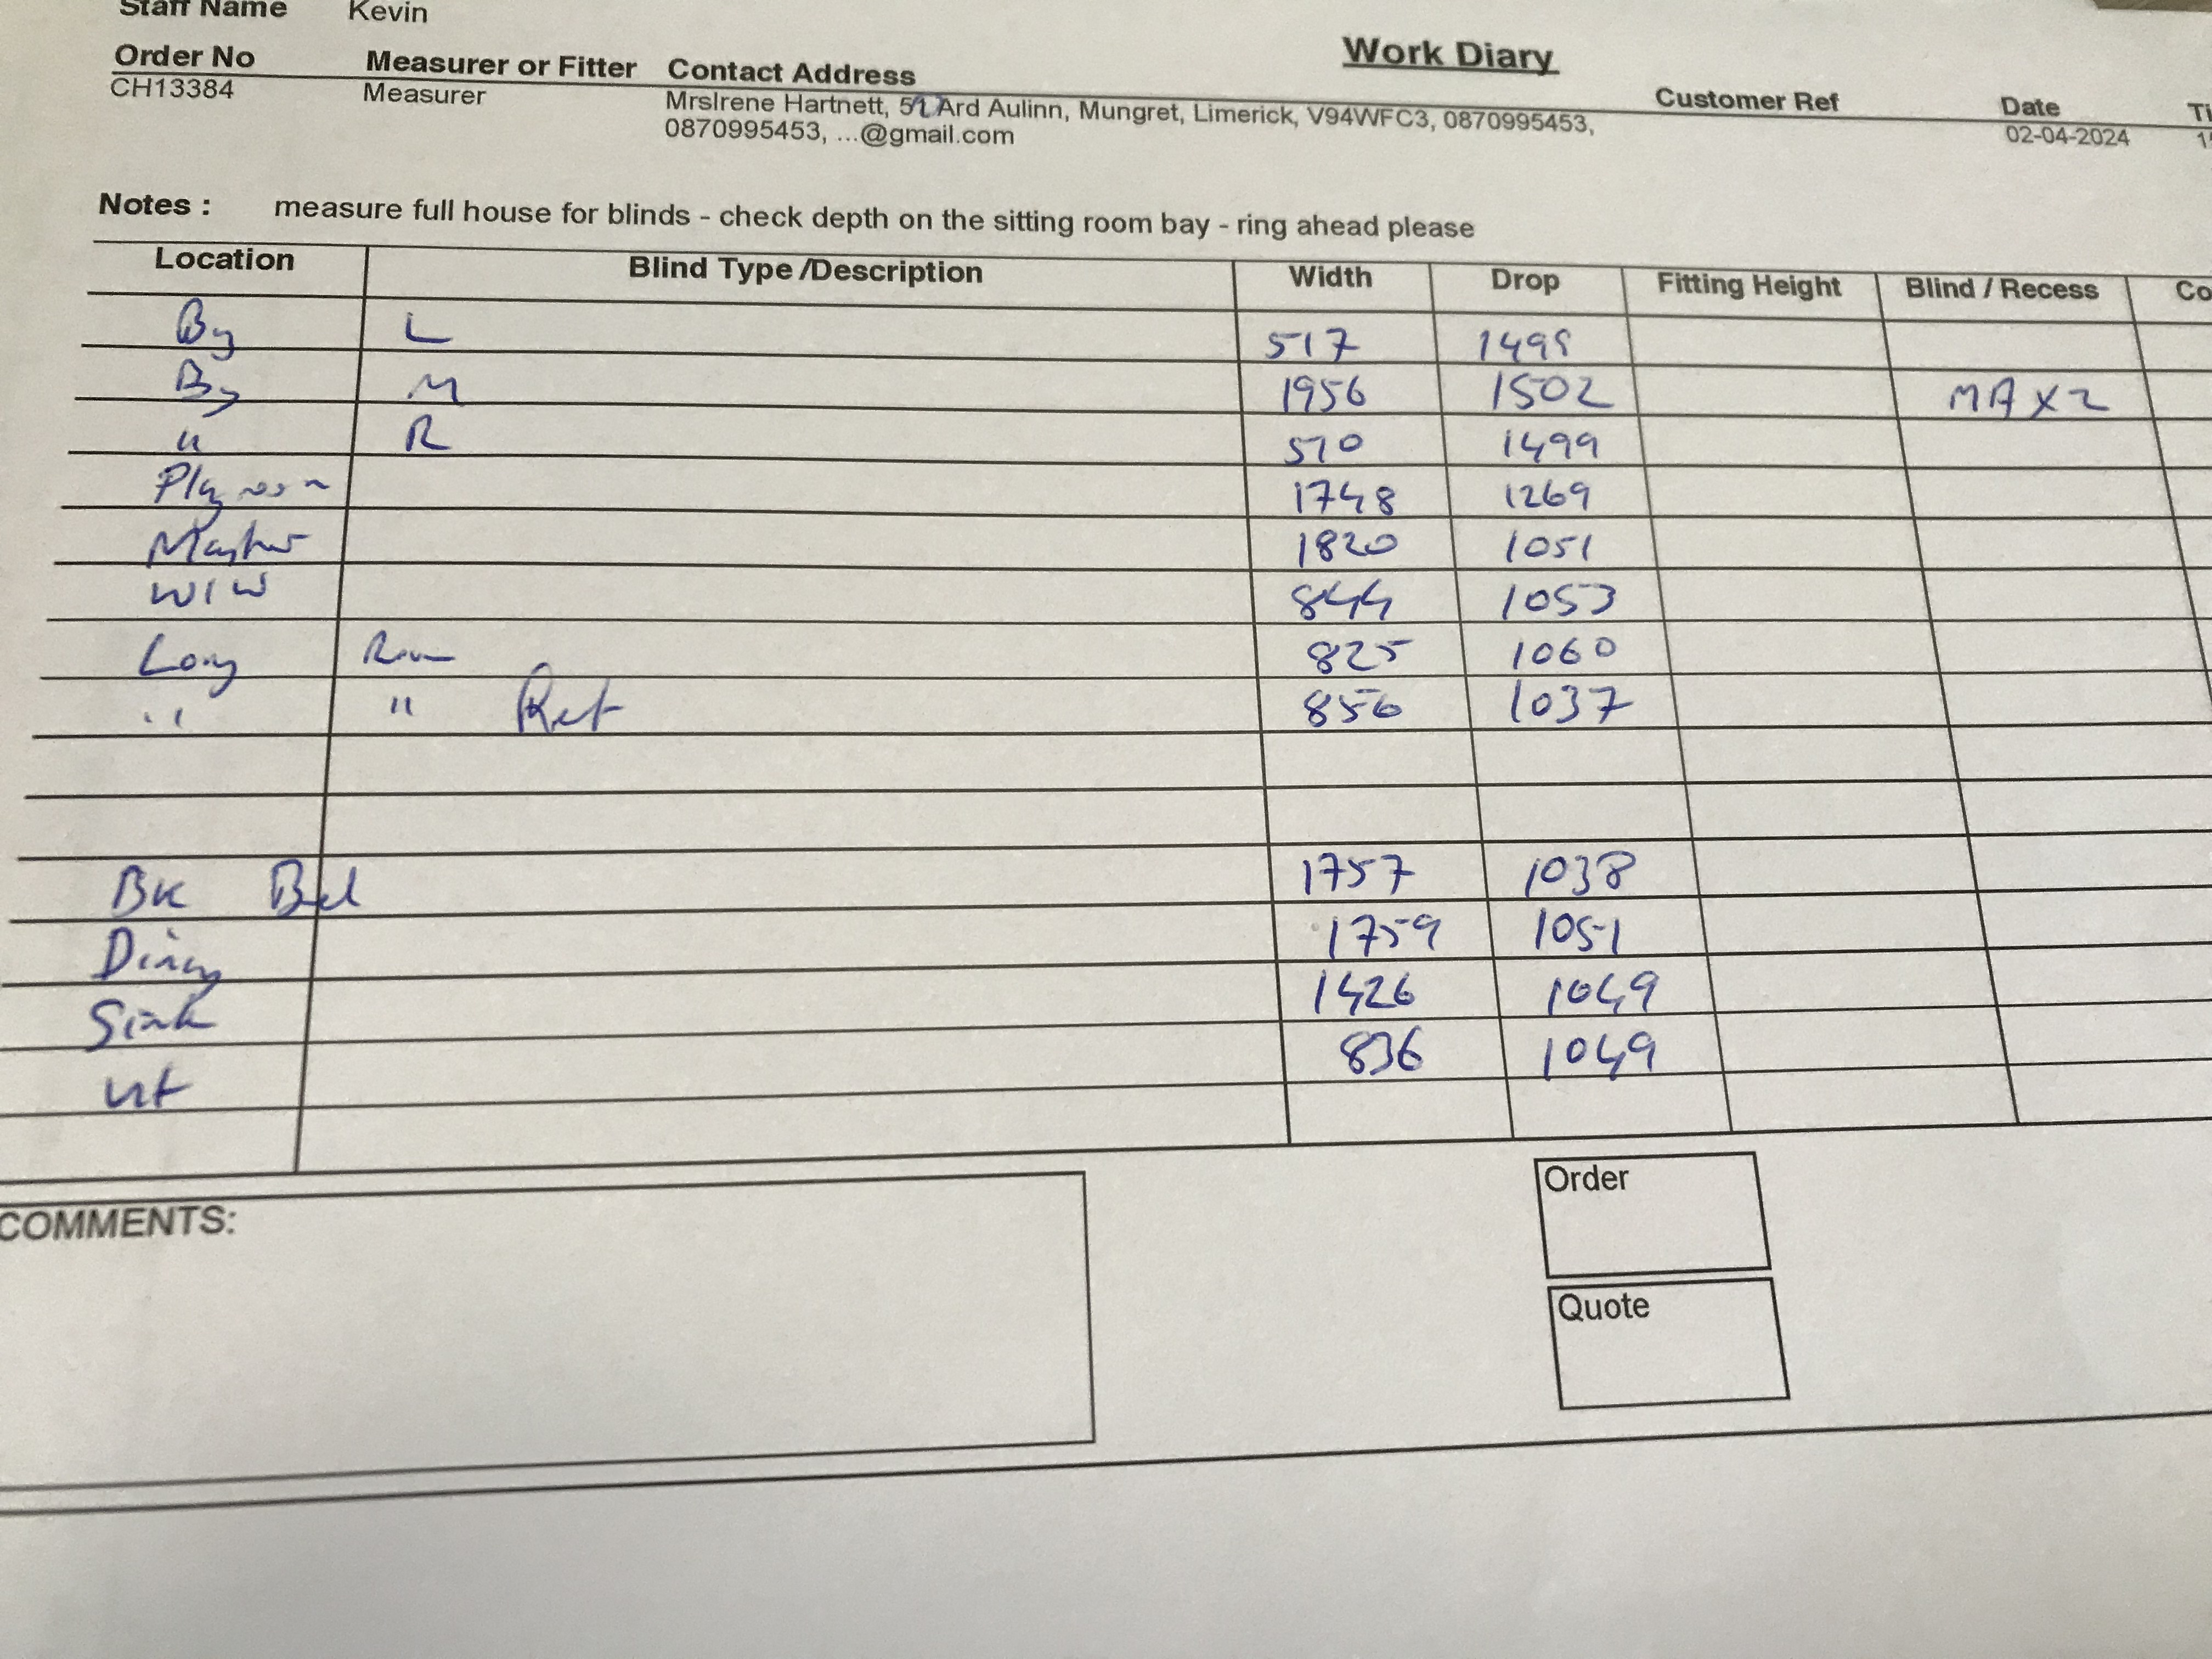 Staff Name Kevin
Work Diary
Order No Measurer or Fitter Contact Address Customer Ref Date Ti
CH13384 Measurer MrsIrene Hartnett, 52 Ard Aulinn, Mungret, Limerick, V94WFC3, 0870995453, 02-04-2024
0870995453, ...@gmail.com
Notes : measure full house for blinds - check depth on the sitting room bay - ring ahead please
Location Blind Type /Description Width Drop Fitting Height Blind / Recess Co
By L 517 1499
By M 1956 1502 MAX 2
" R 510 1499
Playroom 1748 1269
Master 1820 1051
WIW 844 1053
Long Room 825 1060
" " Ret 856 1037
BK Bed 1757 1038
Dining 1759 1051
Sink 1426 1049
Ut 836 1049
COMMENTS:
Order
Quote